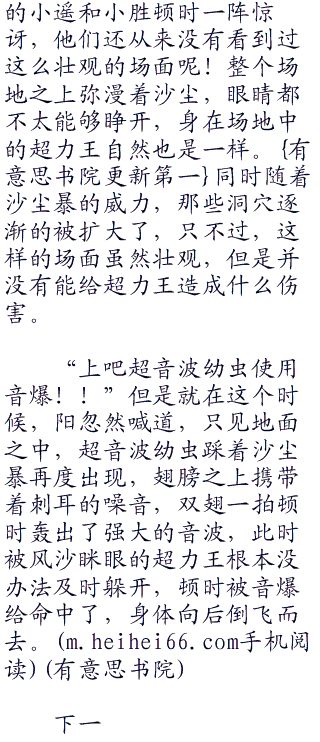 的小遥和小胜顿时一阵惊
讶，他们还从来没有看到过
这么壮观的场面呢！整个场
地之上弥漫着沙尘，眼睛都
不太能够睁开，身在场地中
的超力王自然也是一样。{有
意思书院更新第一}同时随着
沙尘暴的威力，那些洞穴逐
渐的被扩大了，只不过，这
样的场面虽然壮观，但是并
没有能给超力王造成什么伤
害。
“上吧超音波幼虫使用
音爆！！”但是就在这个时
候，阳忽然喊道，只见地面
之中，超音波幼虫踩着沙尘
暴再度出现，翅膀之上携带
着刺耳的噪音，双翅一拍顿
时轰出了强大的音波，此时
被风沙眯眼的超力王根本没
办法及时躲开，顿时被音爆
给命中了，身体向后倒飞而
去。(m.heihei66.com手机阅
读)(有意思书院)
下一